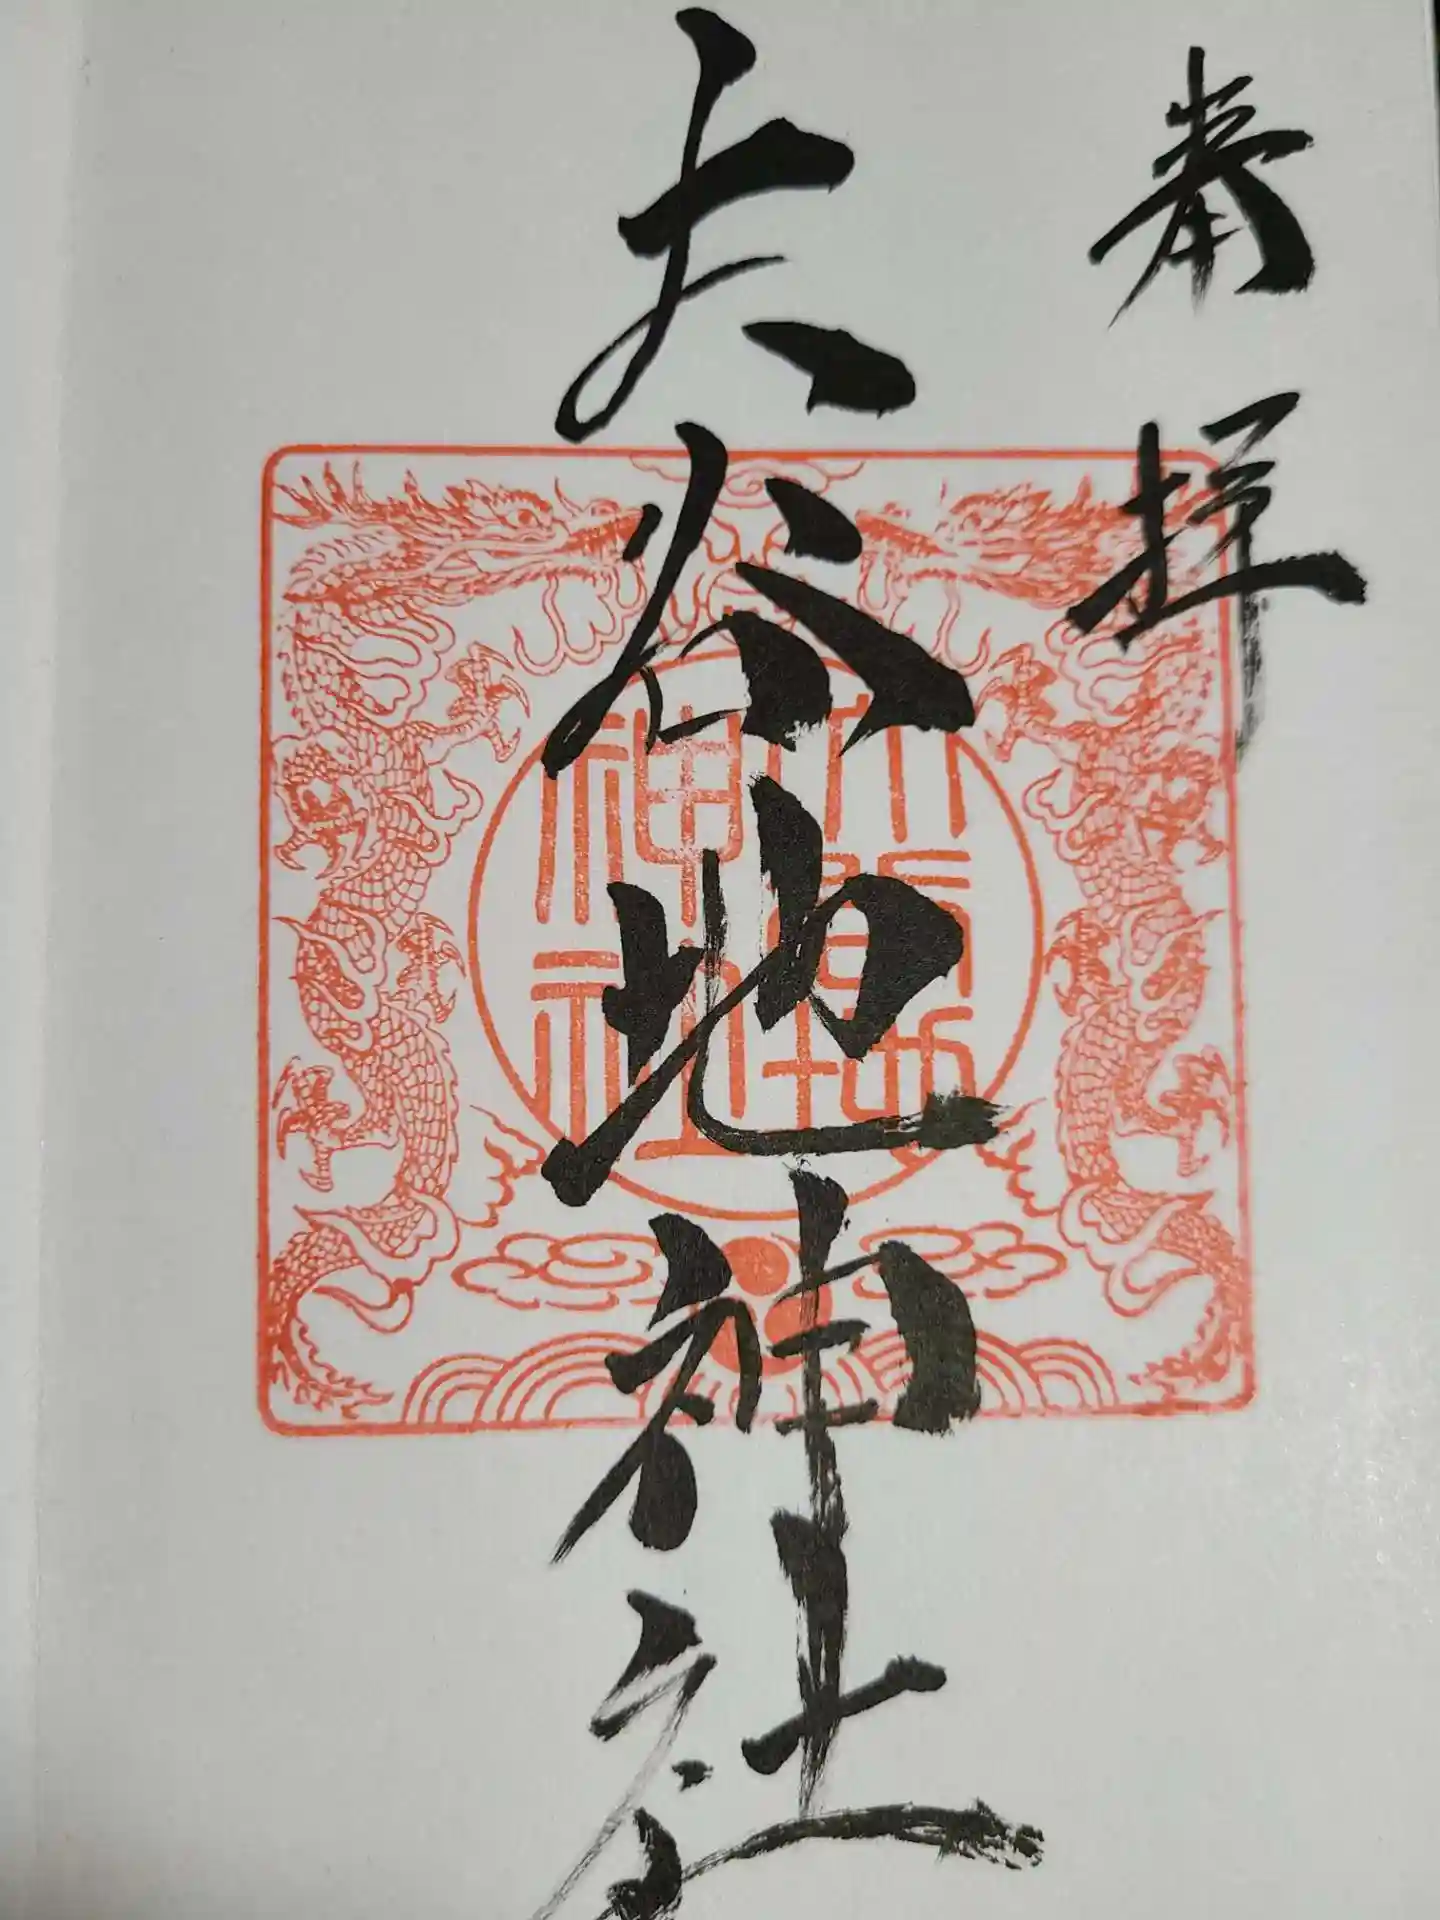 奉拝
大谷地神社
大谷地
神社